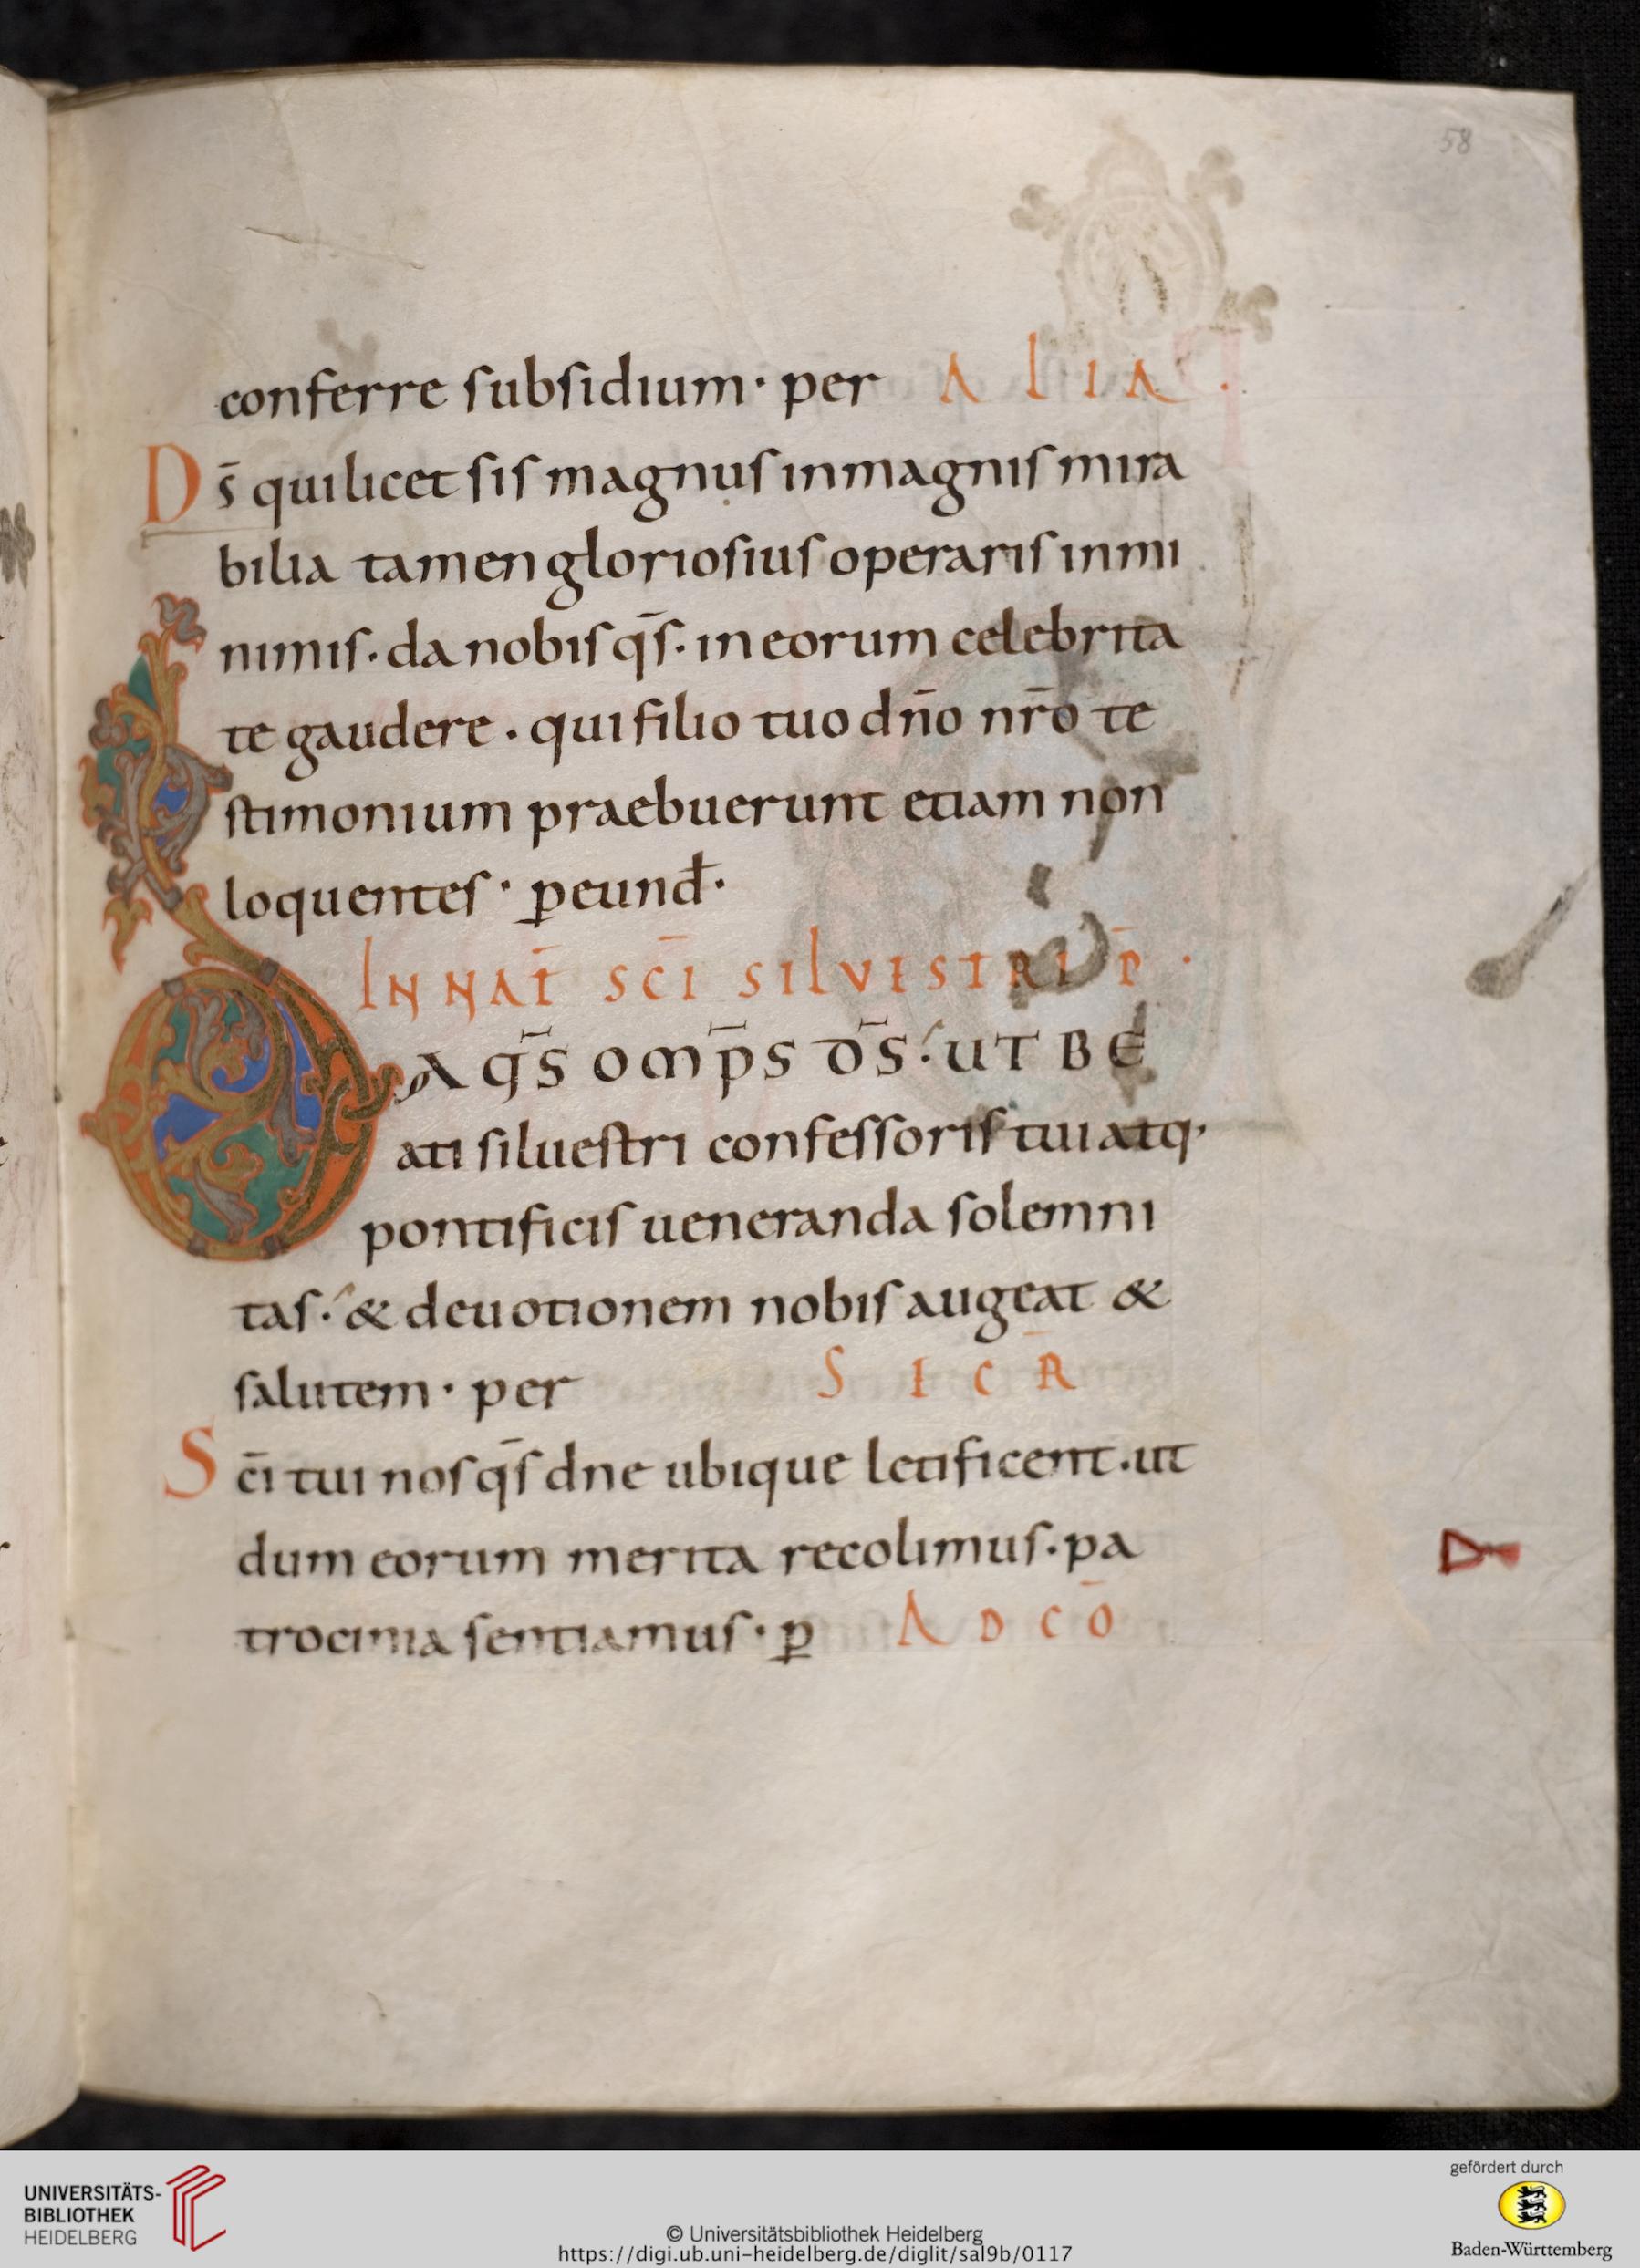 58
conferre subsidium · per ALIA .
D s̄ qui licet sis magnus in magnis mira
bilia tamen gloriosius operaris in mi
nimis . da nobis q̄s . in eorum celebrita
te gaudere . qui filio tuo dn̄o nr̄o te
stimonium praebuerunt etiam non
loquentes · ꝑ eund̄ ·
IN NAT̄ SC̄I SILVESTRI P̄ ·
D A q̄S OMP̄S D̄S . UT BE
ati siluestri confessoris tui atq·
pontificis ueneranda solemni
tas . & deuotionem nobis augeat &
salutem · per SICR̄
S c̄i tui nos q̄s dne ubique letificent . ut
dum eorum merita recolimus . pa
trocinia sentiamus · ꝑ AD CŌ
UNIVERSITÄTS-
BIBLIOTHEK
HEIDELBERG
© Universitätsbibliothek Heidelberg
https://digi.ub.uni-heidelberg.de/diglit/sal9b/0117
gefördert durch
Baden-Württemberg